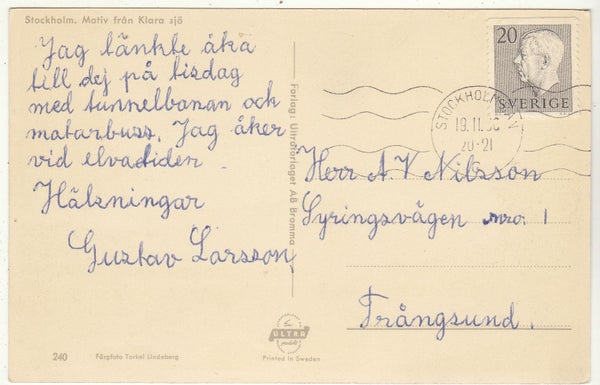 Stockholm. Motiv från Klara sjö
Jag tänkte åka
till dej på tisdag
med tunnelbanan och
matarbuss. Jag åker
vid elvatiden.
Hälsningar
Gustav Larsson
Förlag: Ultraförlaget AB Bromma
20
SVERIGE
STOCKHOLM
19.11.56
20-21
Herr A.V Nilsson
Syringsvägen nro. 1
Trångsund.
ULTRA
240
Färgfoto Torkel Lindeberg
Printed in Sweden